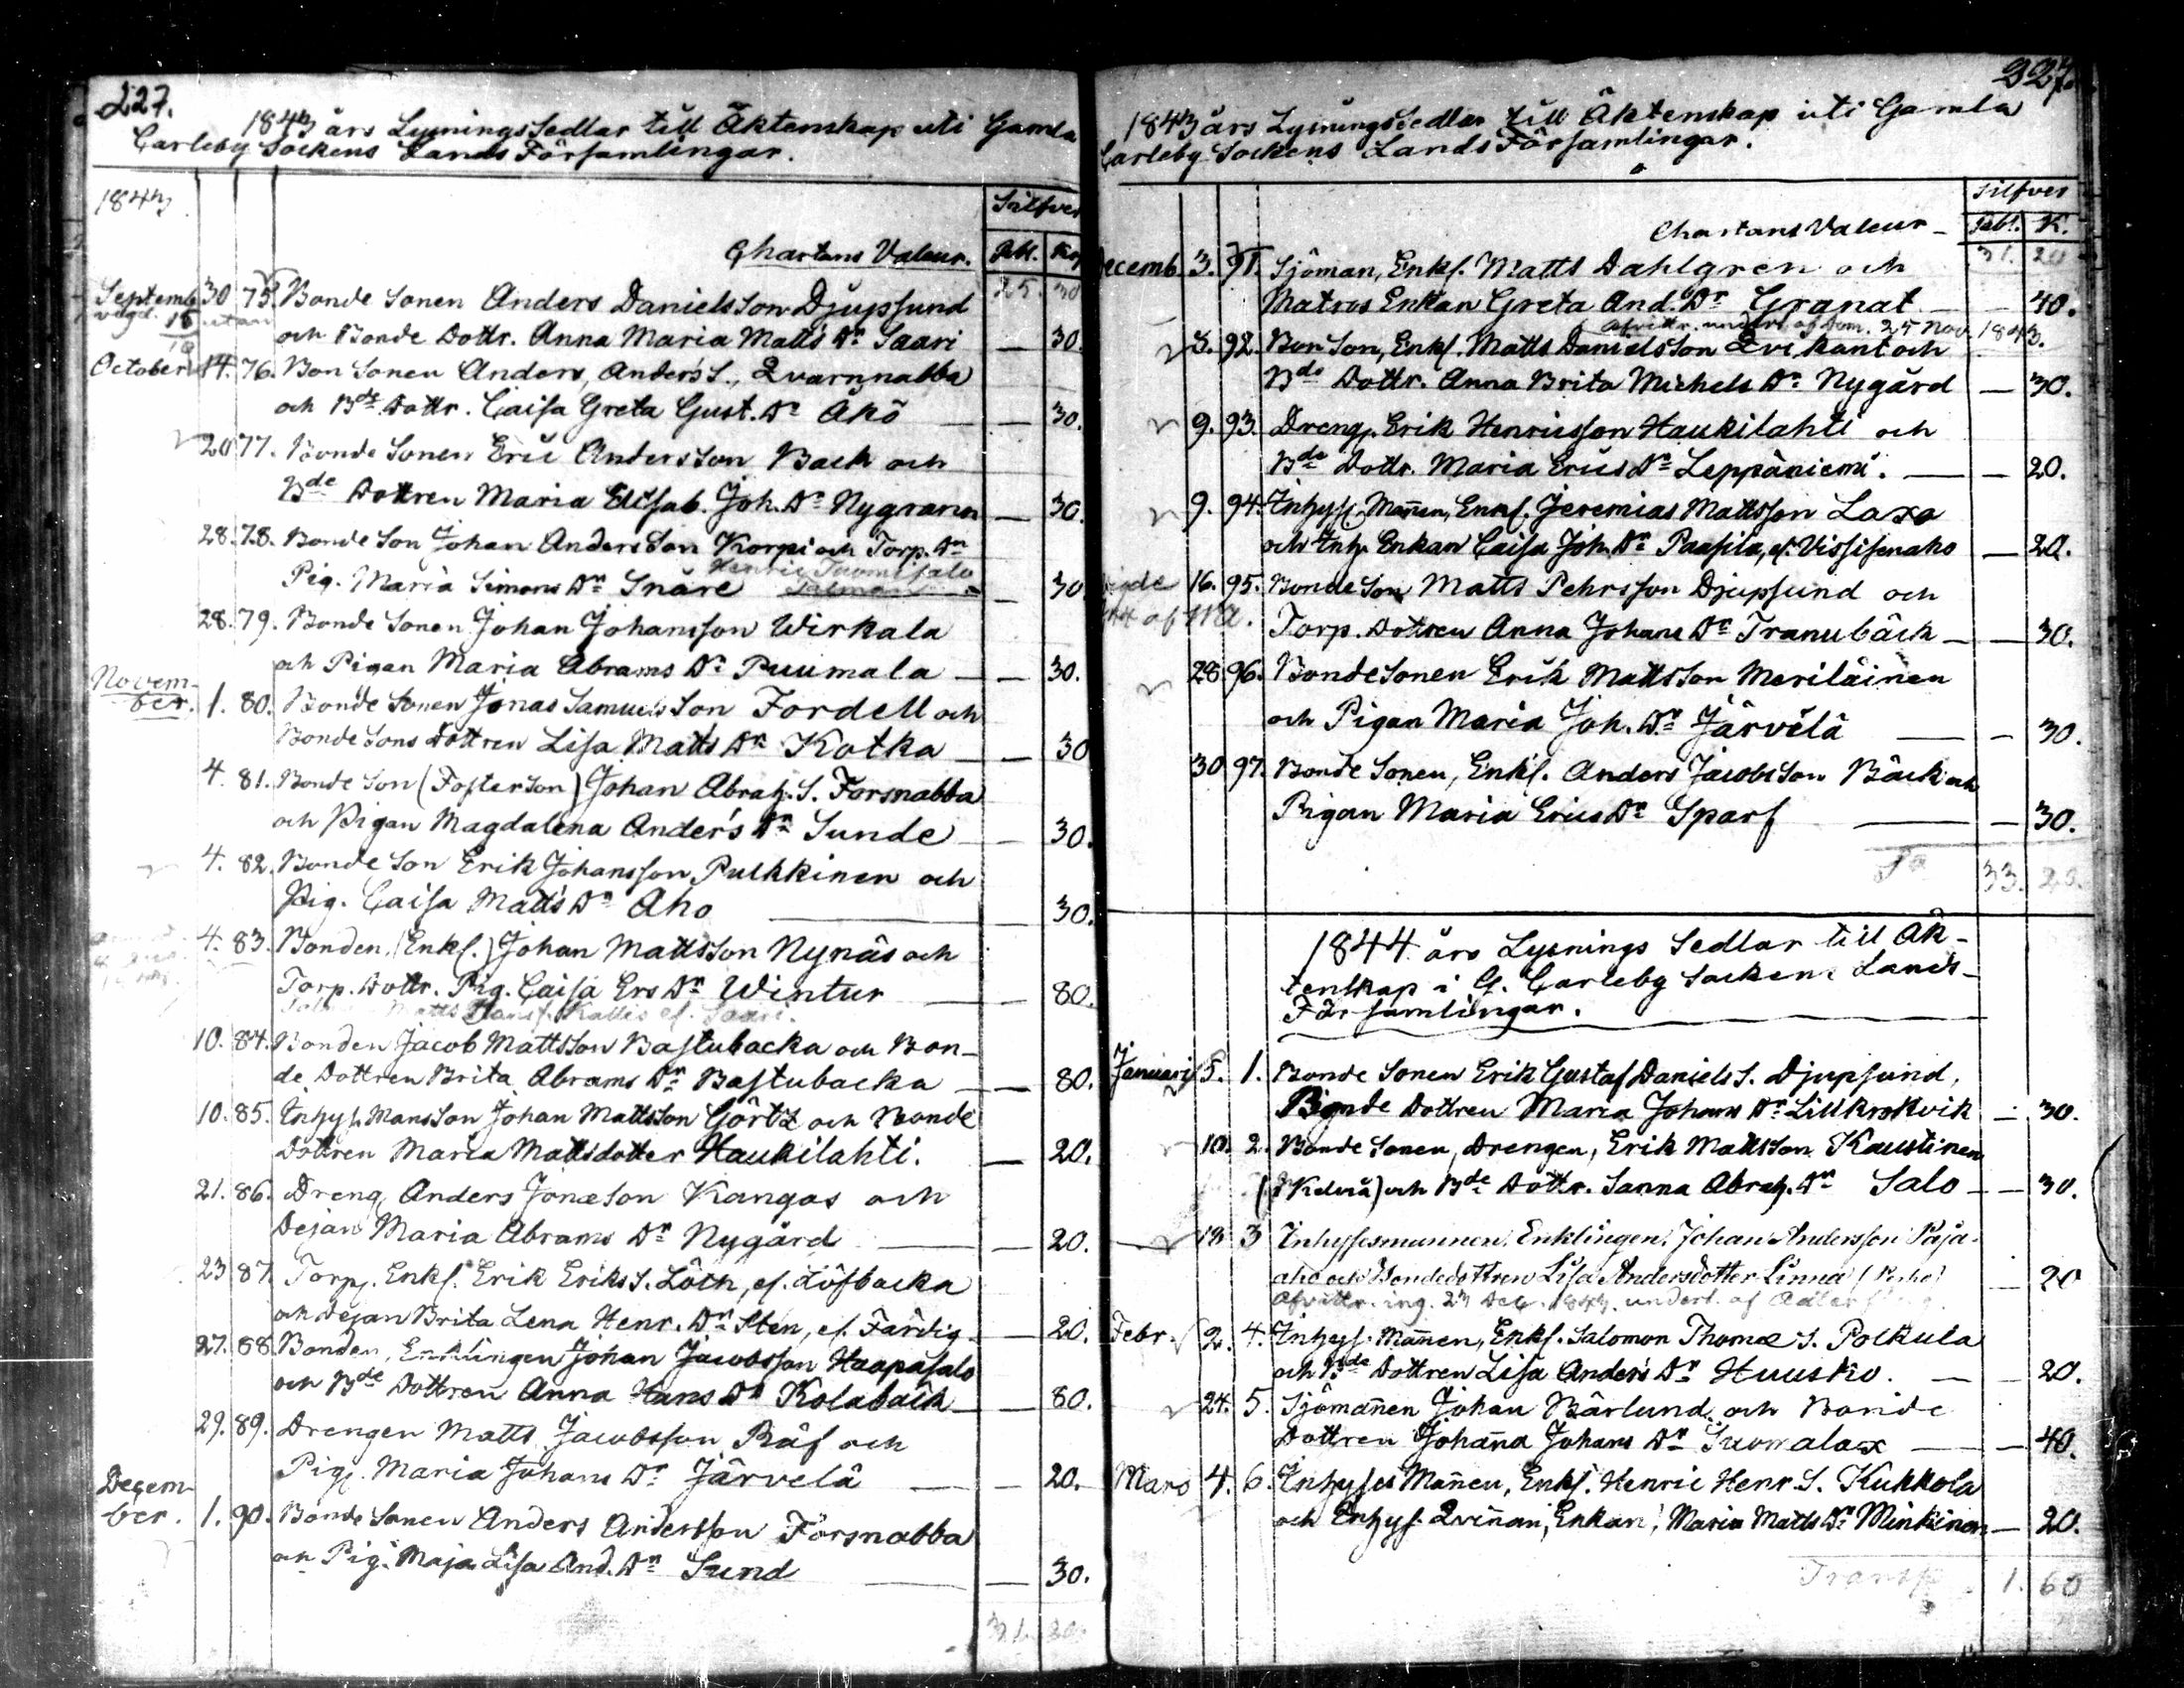 227.
1843 års Lysnings Sedlar till Äktenskap uti Gamla
Carleby Sockens Lands Församlingar.
1843
Silfver
Chartans Valeur. Rbl. Kop
25. 30
Septemb 30 75. Bonde Sonen Anders Danielsson Djupsund
vigd. 15 utan
och Bonde Dottr. Anna Maria Matts Dr Saari — 30.
October 14. 76. Bon Sonen Anders, Anders S., Qvarnnabba
och Bde Dottr. Caisa Greta Gust. Dr Åkö — 30.
20 77. Bonde Sonen Eric Andersson Back och
Bde Dottren Maria Elisab. Joh. Dr Nygrann — 30.
28. 78. Bonde Son Johan Andersson Korpi och Torp. Dn
Henric Tuomisalo
Pig. Maria Simons Dr Snåre — 30
28. 79. Bonde Sonen Johan Johansson Wirkala
och Pigan Maria Abrams Dr Puumala — 30.
Novem-
ber. 1. 80. Bonde Sonen Jonas Samuels Son Fordell och
Bonde Sons Dottren Lisa Matts Dr Kotka — 30
4. 81. Bonde Son (Foster Son) Johan Abrah. S. Forsnabba
och Pigan Magdalena Anders Dr Sunde — 30.
4. 82. Bonde Son Erik Johansson Pulkkinen och
Pig. Caisa Matts Dr Aho — 30.
4. 83. Bonden, (Enkl.) Johan Mattsson Nynäs och
Torp. Dottr. Pig. Caisa Ers Dr Wintur — 80.
Matts Kallis ef. Saari.
10. 84. Bonden Jacob Mattsson Bastubacka och Bon-
de Dottren Brita Abrams Dr Bastubacka — 80.
10. 85. Inhys. Mans Son Johan Mattsson Görtz och Bonde
Dottren Maria Mattsdotter Haukilahti. — 20.
21. 86. Dreng Anders Jonæson Kangas och
Dejan Maria Abrams Dr Nygård — 20.
23 87. Torp. Enkl. Erik Eriks S. Löth, ef. Löfbacka
och Dejan Brita Lena Henr. Dr Sten, ef. Färdig — 20.
27. 88. Bonden, Enklingen Johan Jacobsson Haapasalo
och Bde Dottren Anna Hans Dr Kolabäck — 80.
29. 89. Drengen Matts Jacobsson Räf och
Pig. Maria Johans Dr Järvelä — 20.
Decem-
ber. 1. 90. Bonde Sonen Anders Andersson Forsnabba
och Pig. Maja Lisa And. Dr Sund — 30.
227.
1843 års Lysnings Sedlar till Äktenskap uti Gamla
Carleby Sockens Lands Församlingar.
Silfver
Chartans Valeur — Rbl. K.
31. 20
Decemb 3. 91. Sjöman, Enkl. Matts Dahlgren och
Matros Enkan Greta And. Dr Granat — 40.
Afvittr. undert. af Dom. 25 Nov. 1843.
3. 92. Bon Son, Enkl. Matts Danielsson Qvikant och
Bde Dottr. Anna Brita Michels Dr Nygård — 30.
9. 93. Dreng. Erik Henricsson Haukilahti och
Bde Dottr. Maria Erics Dr Leppäniemi. — 20.
9. 94. Inhyss. Mannen, Enkl. Jeremias Mattsson Laxo
och Inh. Enkan Caisa Joh. Dr Paasila, ef. Vissisenaho — 20.
16. 95. Bonde Son Matts Pehrsson Djupsund och
Torp. Dottren Anna Johans Dr Tranubäck — 30.
28. 96. Bonde Sonen Erik Mattsson Meriläinen
och Pigan Maria Joh. Dr Järvelä — 30.
30 97. Bonde Sonen, Enkl. Anders Jacobsson Bäck och
Pigan Maria Erics Dr Sparf — 30.
33. 20.
1844 års Lysnings Sedlar till Äk-
tenskap i G. Carleby Sockens Lands-
Församlingar.
Januari 5. 1. Bonde Sonen Erik Gustaf Daniels S. Djupsund,
Bonde Dottren Maria Johans Dr Lillkrokvik — 30.
10. 2. Bonde Sonen, Drengen, Erik Mattsson Kaustinen
(i Kelviå) och Bde Dottr. Sanna Abrah. Dr Salo — 30.
18 3 Inhysesmannen, Enklingen, Johan Andersson Paja-
aho och Bondedottren Lisa Andersdotter Linna — 20
Afvittr. ing. 23 Dec. 1843. undert. af
Febr. 2. 4. Inhys. Mannen, Enkl. Salomon Thomæ S. Polkula
och Bde Dottren Lisa Anders Dr Huusko. — 20.
24. 5. Sjömannen Johan Bärlund och Bonde
Dottren Johanna Johans Dr Suomalax — 40.
Mars 4. 6. Inhyses Mannen, Enkl. Henric Henr. S. Kukkola
och Inhys. Qvinnan, Enkan, Maria Matts Dr Minkinen — 20.
Transp. 1. 60